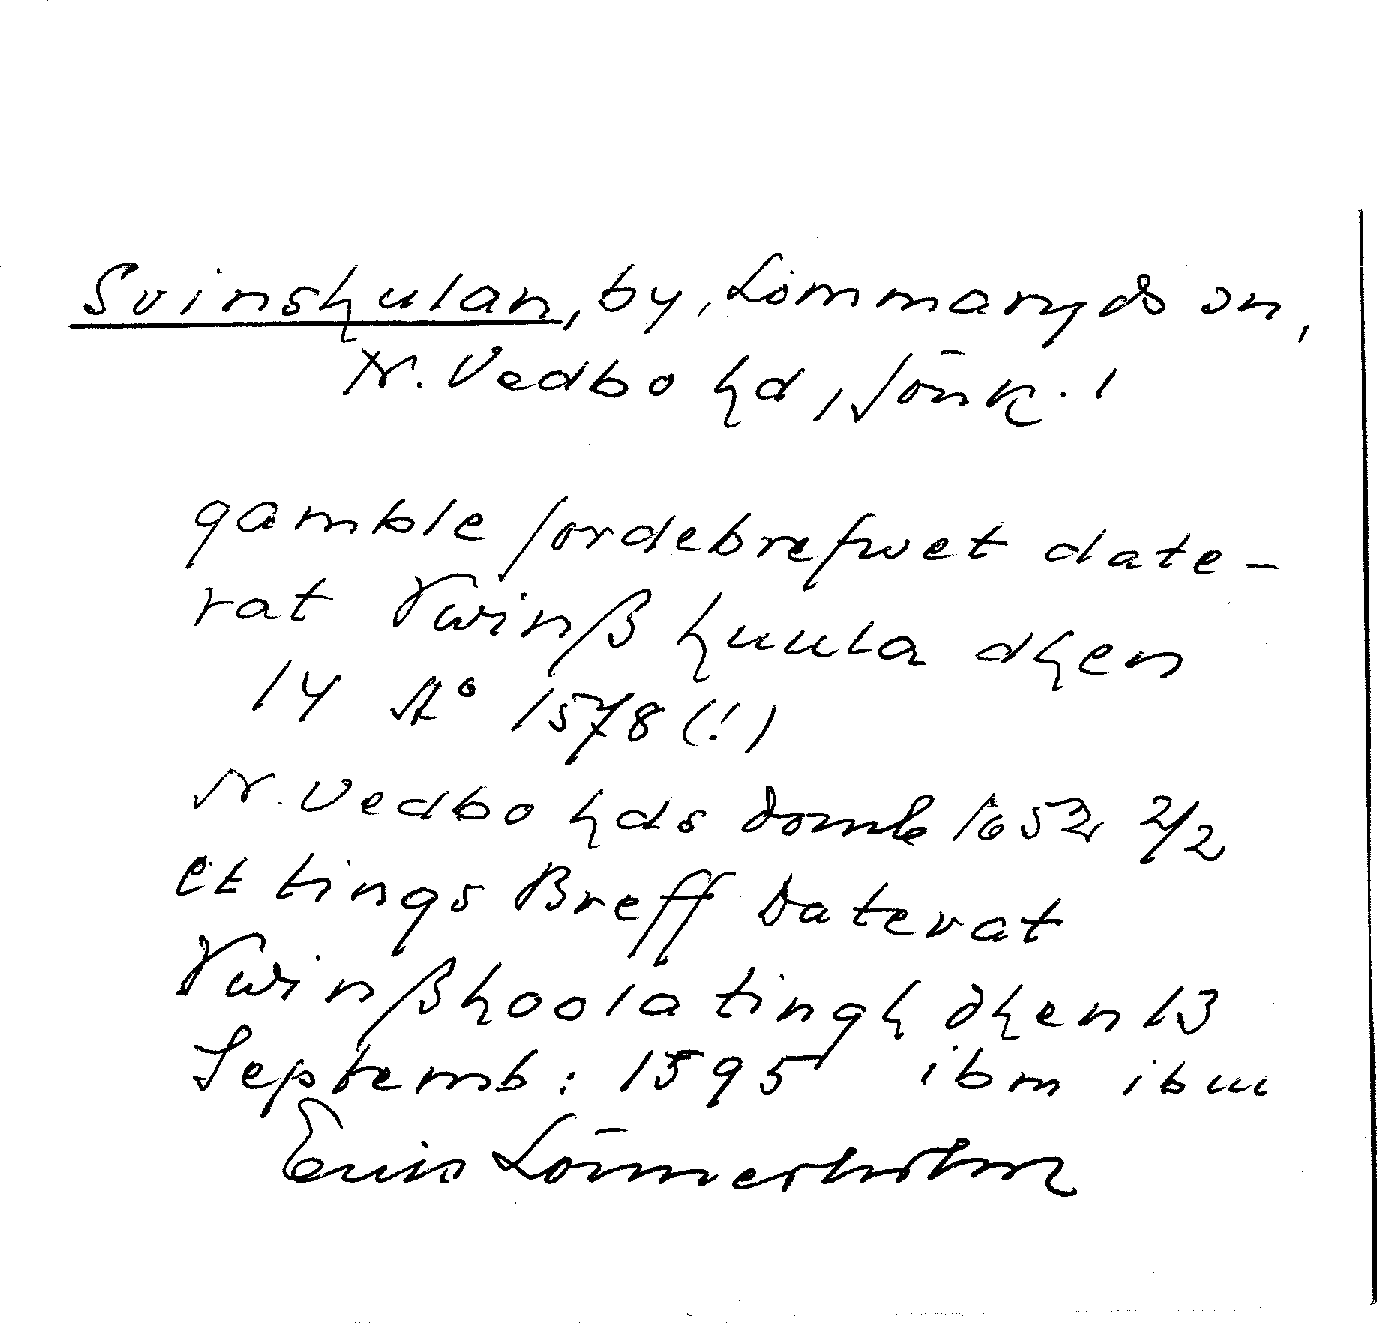 Svinshulan, by, Lommaryds sn,
N. Vedbo hd, Jönk. l
gamble Jordebrefwet date-
rat Swinßhuula dhen
14 A° 1578 (!)
N. Vedbo hds domb 1652 2/2
et tings Breff Daterat
Swinßhoola tingh dhen 13
Septemb: 1595 ibm ibm
Eric Lönnerholm